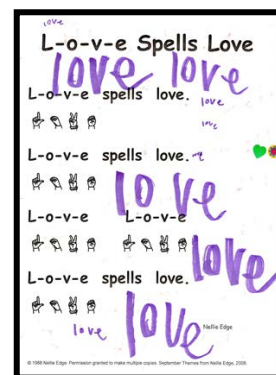 love
L-o-v-e Spells Love
love love
L-o-v-e spells love.
love
love
L-o-v-e spells love.
love
L-o-v-e L-o-v-e
love
L-o-v-e spells love.
love love
Nellie Edge
© 1988 Nellie Edge. Permission granted to make multiple copies. September Themes from Nellie Edge, 2008.